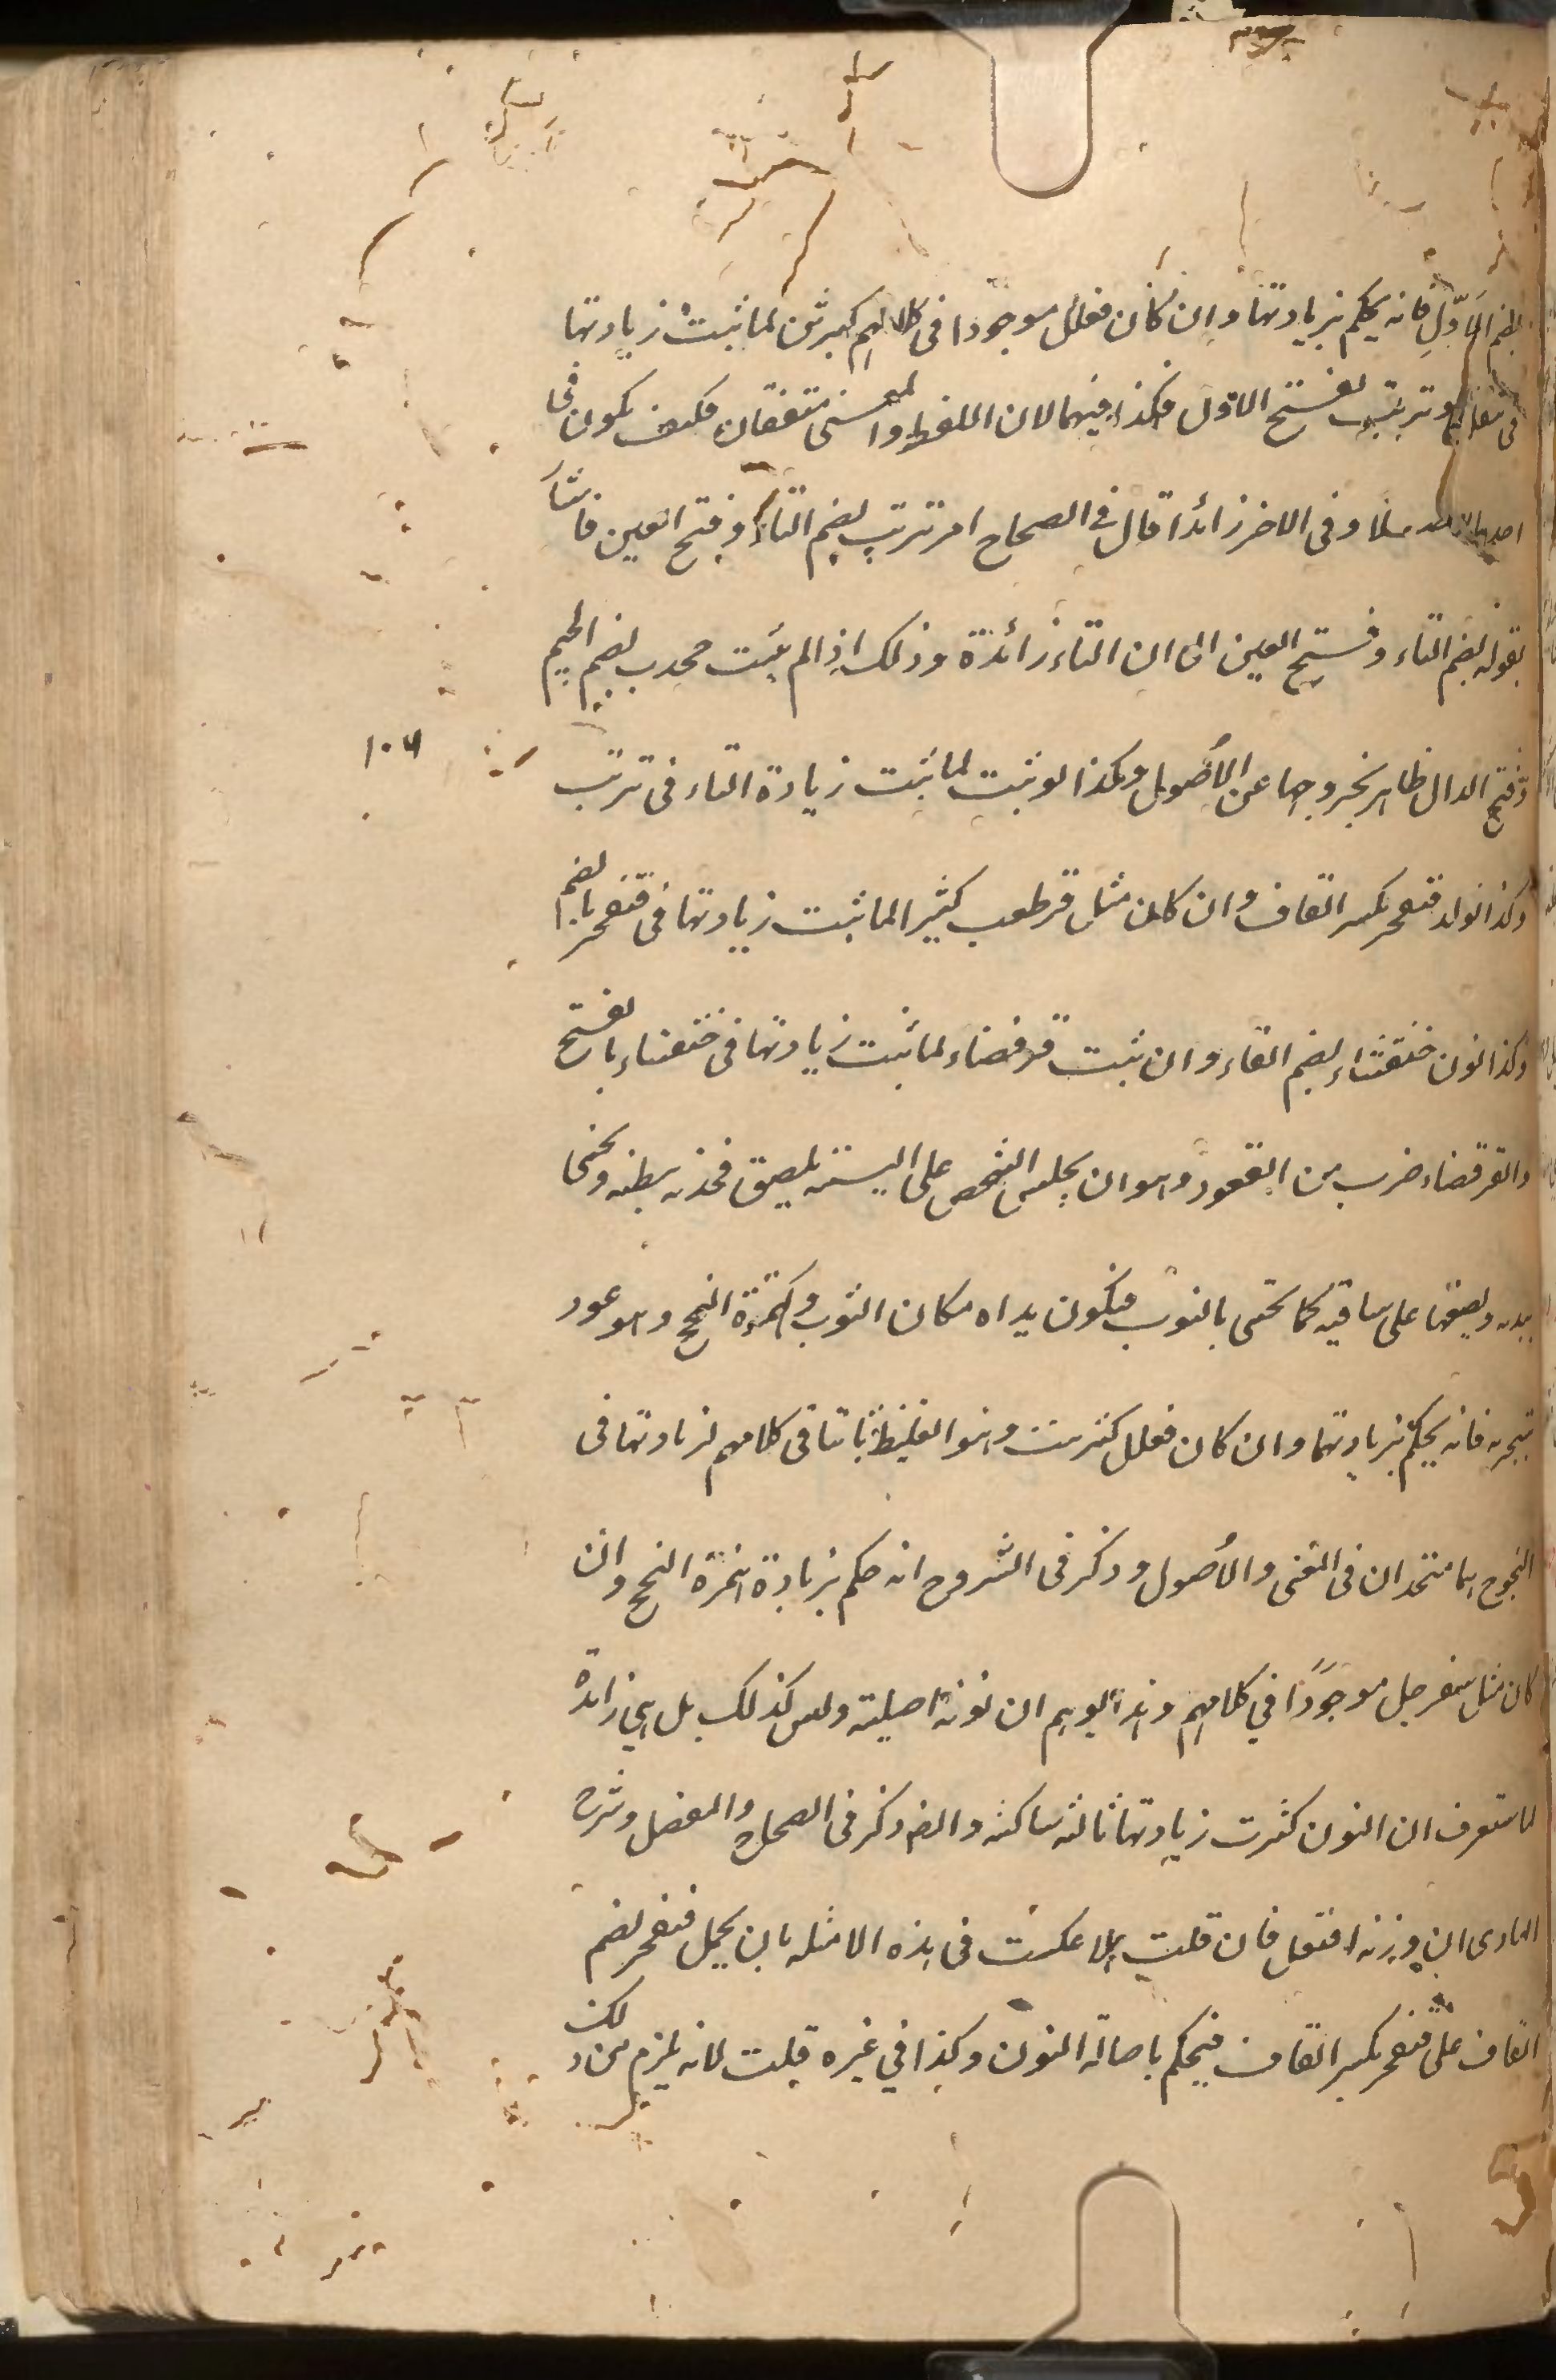 بضم الاول فانه يحكم بزيادتها وان كان فعلل موجودا في كلامهم كبرثن لما ثبت زيادتها
في تتفل وترتب بفتح الاول فكذا فيهما لان اللفظ والمعنى متفقان فكيف يكون في
احدهما اصلا وفي الاخر زائدا قال في الصحاح امر ترتب بضم التاء وفتح العين فاشار
بقوله بضم التاء وفتح العين الى ان التاء زائدة وذلك اذا لم يثبت جحدب بضم الجيم
وفتح الدال ظاهر بخروجها عن الأصول وهكذا لو ثبت لما ثبت زيادة التاء في ترتب
١٠٦
وكذا نون قنفخر بكسر القاف وان كان مثل قرطعب كثيرا لما ثبت زيادتها في قنفخر بالضم
وكذا نون خنفساء بضم الفاء وان ثبت قرفصاء لما ثبت زيادتها في خنفساء بالفتح
والقرفصاء ضرب من القعود وهو ان يجلس الشخص على اليتيه يلصق فخذيه ببطنه ويحتبى
بيديه ويضعها على ساقيه كما يحتبى بالثوب فيكون يداه مكان الثوب وهمزة النجج وهو عود
يتبخر به فانه يحكم بزيادتها وان كان فعلل كشرنبث وهو الغليظ ثابتا في كلامهم لزيادتها في
النجوج هما متحدان في المعنى والأصول وذكر في الشروح انه حكم بزيادة همزة النجج وان
كان مثل سفرجل موجودا في كلامهم وهذا يوهم ان نونه اصلية وليس كذلك بل هي زائدة
لما ستعرف ان النون كثرت زيادتها ثالثه ساكنه وايضا ذكر في الصحاح والمفصل وشرح
الهادى ان وزنه افنعل فان قلت هلا عكست في هذه الامثله بان يحمل قنفخر بضم
القاف على قنفخر بكسر القاف فيحكم باصالة النون وكذا في غيره قلت لانه يلزم من ذلك